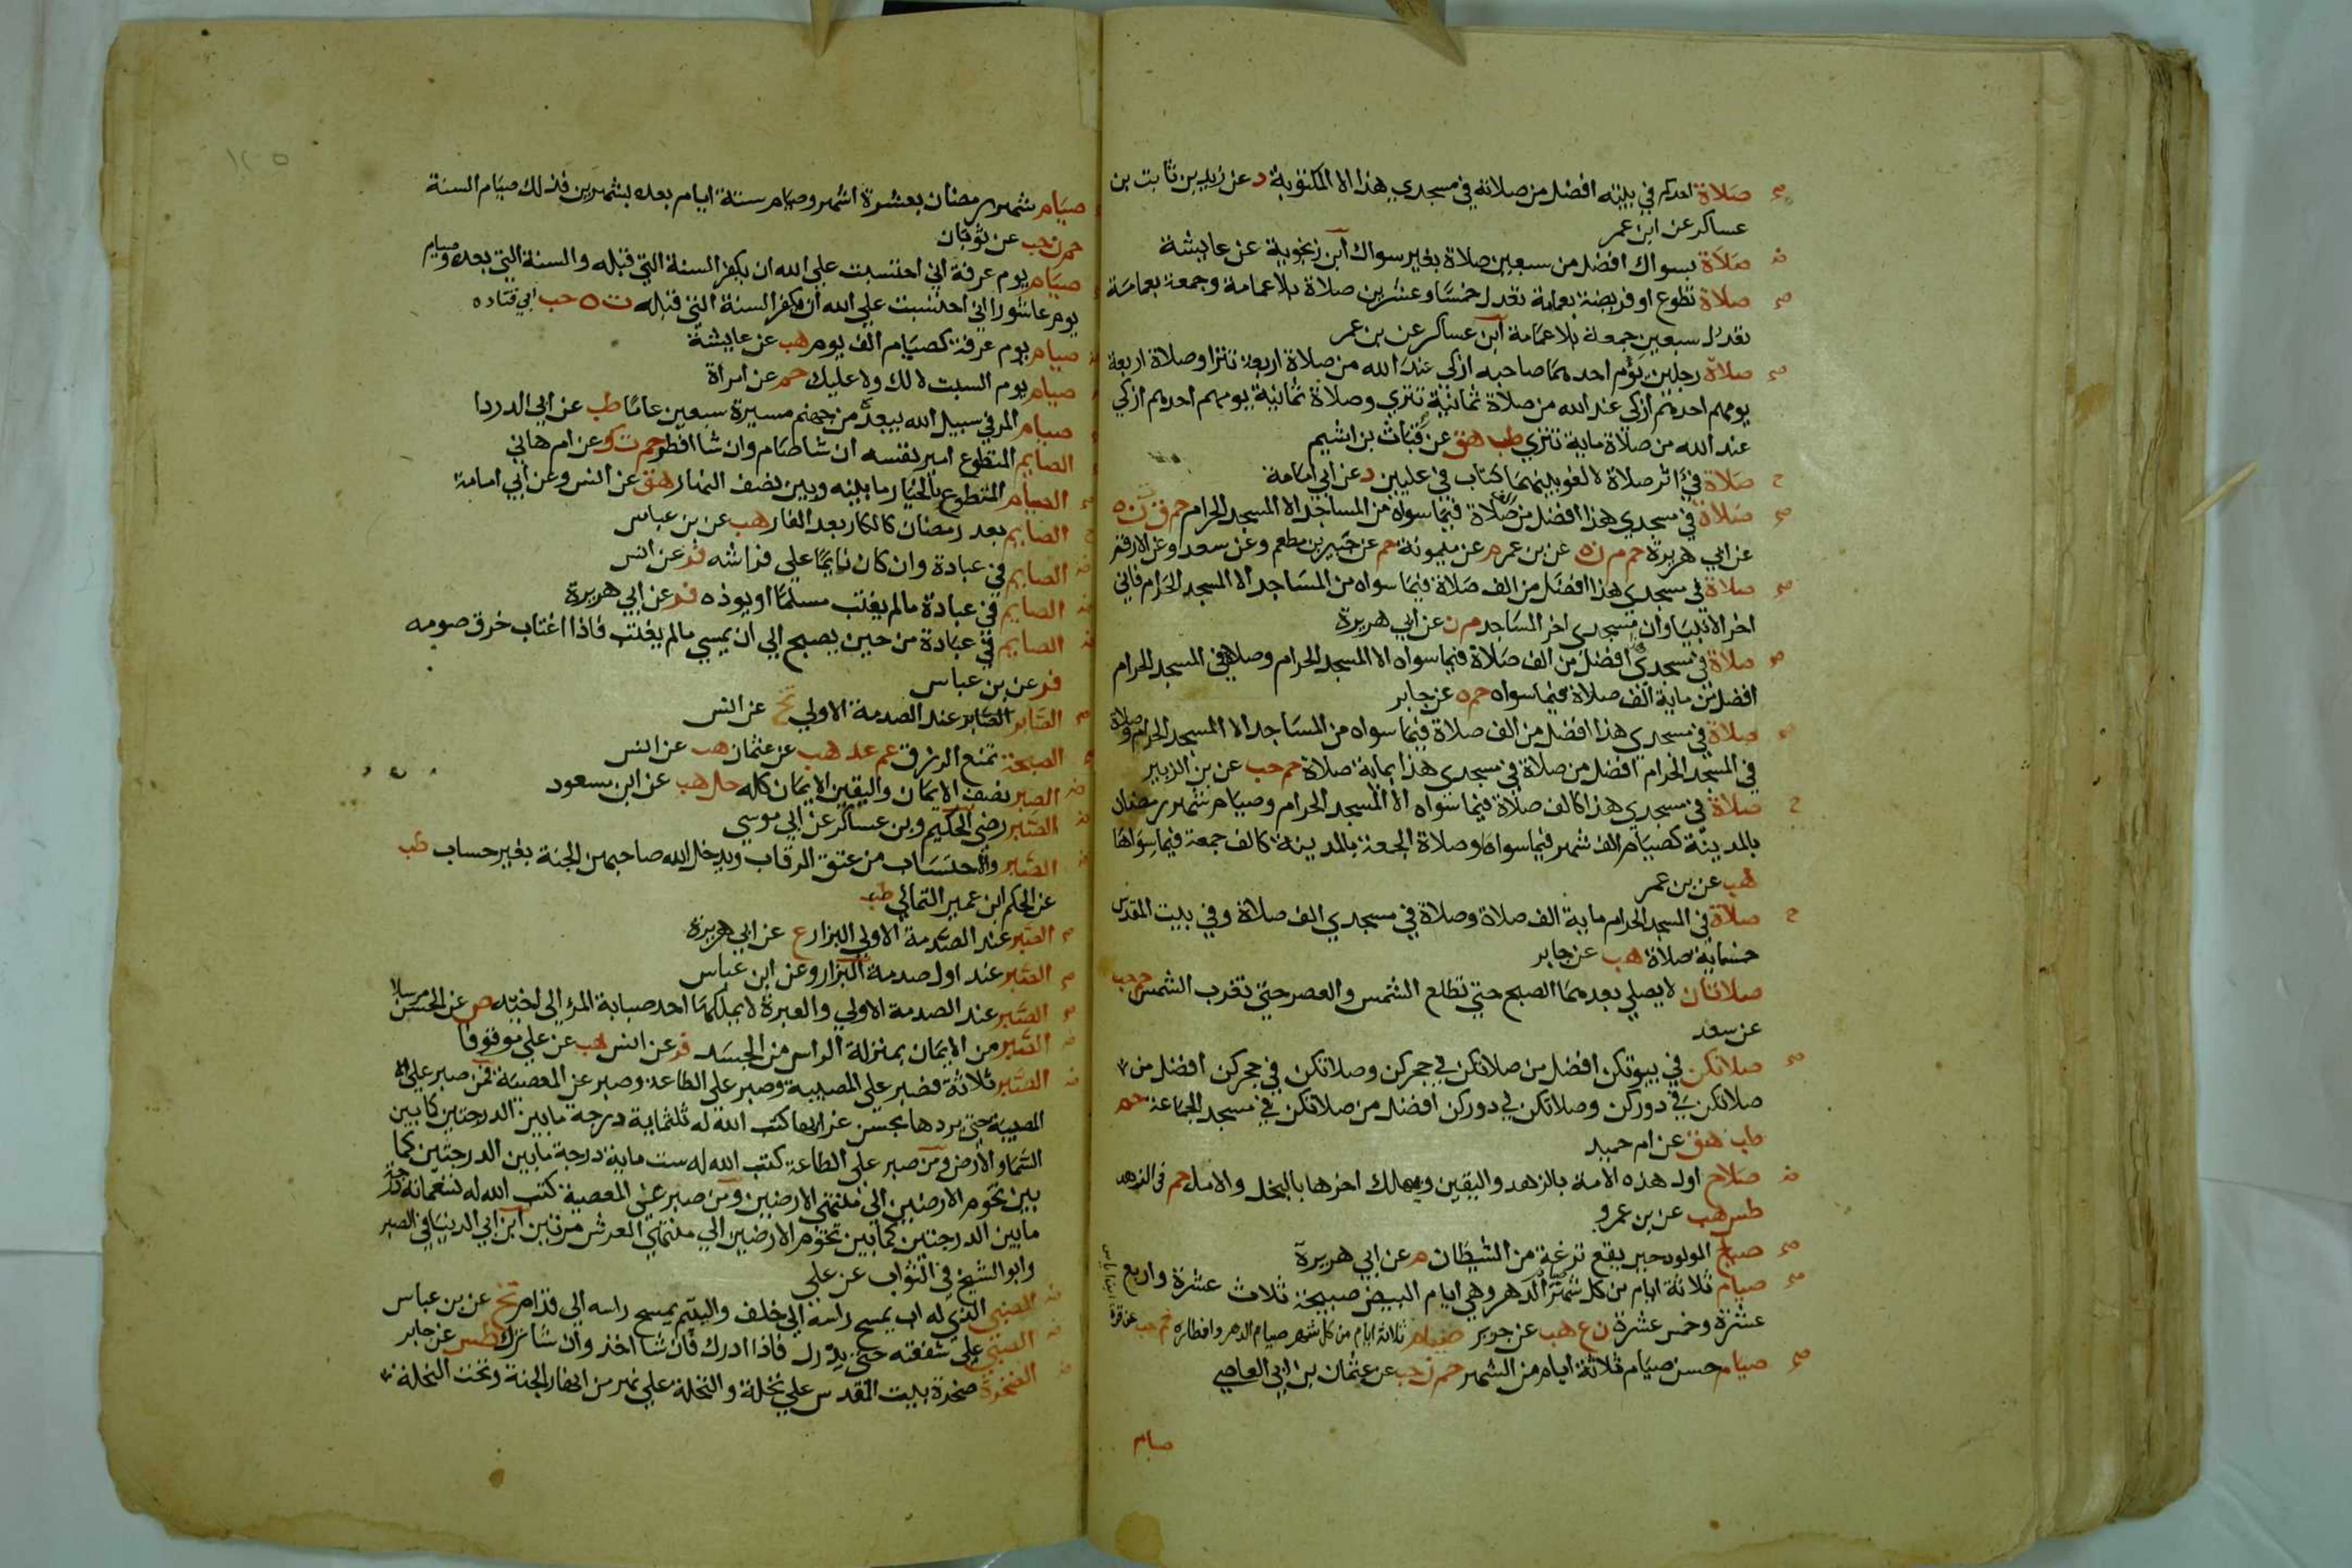 صح صلاة احدكم في بيته افضل من صلاته في مسجدي هذا الا المكتوبة د عن زيد بن ثابت بن
عساكر عن ابن عمر
ض صلاة بسواك افضل من سبعين صلاة بغير سواك ابن زنجوية عن عايشة
صح صلاة تطوع او فريضة بعمامة تعدل خمسًا وعشرين صلاة بلا عمامة وجمعة بعمامة
تعدل سبعين جمعة بلا عمامة ابن عساكر عن بن عمر
صح صلاة رجلين يؤم احدهما صاحبه ازكى عند الله من صلاة اربعة تترا وصلاة اربعة
يومهم احدهم ازكى عند الله من صلاة ثمانية تتري وصلاة ثمانية يومهم احدهم ازكي
عند الله من صلاة ماية تتري طب هق عن قباث بن اشيم
ح صلاة في اثر صلاة لا لغو بينهما كتاب في عليين د عن ابي امامة
صح صلاة في مسجدي هذا افضل من الف صلاة فيما سواه من المساجد الا المسجد الحرام حم ق ت ن ه
عن ابي هريرة حم م ن ه عن بن عمر م عن ميمونة حم عن جبير بن مطعم وعن سعد وعن الارقم
صح صلاة في مسجدي هذا افضل من الف صلاة فيما سواه من المساجد الا المسجد الحرام فاني
اخر الانبيا وان مسجدي اخر المساجد م ن عن ابي هريرة
صح صلاة في مسجدي افضل من الف صلاة فيما سواه الا المسجد الحرام وصلاة في المسجد الحرام
افضل من ماية الف صلاة فيما سواه حم ه عن جابر
صح صلاة في مسجدي هذا افضل من الف صلاة فيما سواه من المساجد الا المسجد الحرام وصلاة
في المسجد الحرام افضل من صلاة في مسجدي هذا بماية صلاة حم حب عن بن الزبير
ح صلاة في مسجدي هذا كالف صلاة فيما سواه الا المسجد الحرام وصيام شهر رمضان
بالمدينة كصيام الف شهر فيما سواها وصلاة الجمعة بالمدينة كالف جمعة فيما سواها
هب عن بن عمر
ح صلاة في المسجد الحرام ماية الف صلاة وصلاة في مسجدي الف صلاة وفي بيت المقدس
خمسماية صلاة هب عن جابر
صلاتان لا يصلي بعدهما الصبح حتى تطلع الشمس والعصر حتى تغرب الشمس حم حب
عن سعد
صح صلاتكن في بيوتكن افضل من صلاتكن في حجركن وصلاتكن في حجركن افضل من
صلاتكن في دوركن وصلاتكن في دوركن افضل من صلاتكن في مسجد الجماعة حم
طب هق عن ام حميد
ض صلاح اول هذه الامة بالزهد واليقين ويهلك اخرها بالبخل والامل حم في الزهد
طس هب عن بن عمرو
صح صياح المولود حين يقع نزغة من الشيطان م عن ابي هريرة
صح صيام ثلاثة ايام من كل شهر صيام الدهر وهي ايام البيض صبيحة ثلاث عشرة واربع
عشرة وخمس عشرة ن ع هب عن جرير صيام ثلاثة ايام من كل شهر صيام الدهر وافطاره حم حب عن قرة
صح صيام حسن صيام ثلاثة ايام من الشهر حم ن حب عن عثمان بن ابي العاصي
صيام
١٢٥
صيام شهر رمضان بعشرة اشهر وصيام ستة ايام بعده بشهرين فذلك صيام السنة
حم ن حب عن ثوبان
صيام يوم عرفة اني احتسبت على الله ان يكفر السنة التي قبله والسنة التي بعده وصيام
يوم عاشورا اني احتسبت علي الله ان يكفر السنة التي قبله ت ه حب ابي قتاده
صيام يوم عرفة كصيام الف يوم هب عن عايشة
صيام يوم السبت لا لك ولا عليك حم عن امراة
صيام المرء في سبيل الله يبعده من جهنم مسيرة سبعين عامًا طب عن ابي الدردا
الصايم المتطوع امير نفسه ان شا صام وان شا افطر حم ت ك عن ام هاني
الصايم المتطوع بالخيار ما بينه وبين نصف النهار هق عن انس وعن ابي امامة
ح الصايم بعد رمضان كالكار بعد الفار هب عن بن عباس
ض الصايم في عبادة وان كان نايمًا على فراشه فر عن انس
ض الصايم في عبادة ما لم يغتب مسلمًا او يوذه فر عن ابي هريرة
ض الصايم في عبادة من حين يصبح الي ان يمسي ما لم يغتب فاذا اغتاب خرق صومه
فر عن بن عباس
صح الصابر الصابر عند الصدمة الاولي تخ عن انس
الصبحة تمنع الرزق عم عد هب عن عثمان هب عن انس
ض الصبر نصف الايمان واليقين الايمان كله حل هب عن ابن مسعود
ض الصبر رضى الحكيم وبن عساكر عن ابي موسي
ض الصبر والاحتساب من عتق الرقاب ويدخل الله صاحبهن الجنة بغير حساب طب
عن الحكم ابن عمير الثمالي طب
صح الصبر عند الصدمة الاولي البزار ع عن ابي هريرة
صح الصبر عند اول صدمة البزار وعن ابن عباس
صح الصبر عند الصدمة الاولي والعبرة لا يملكها احد صبابة المرء الى اخيه ص عن الحسن مرسلا
ض الصبر من الايمان بمنزلة الراس من الجسد فر عن انس هب عن علي موقوفا
ض الصبر ثلاثة فصبر على المصيبة وصبر على الطاعة وصبر عن المعصية فمن صبر على
المصيبة حتى يردها بحسن عزايها كتب الله له ثلثماية درجة ما بين الدرجتين كما بين
السما والارض ومن صبر على الطاعة كتب الله له ست ماية درجة ما بين الدرجتين كما
بين تخوم الارضين الى منتهى الارضين ومن صبر عن المعصية كتب الله له تسعماية درجة
ما بين الدرجتين كما بين تخوم الارضين الي منتهى العرش مرتين ابن ابي الدنيا في الصبر
وابو الشيخ في الثواب عن علي
ض الصبي الذي له اب يمسح راسه الي خلف واليتيم يمسح راسه الى قدام تخ عن بن عباس
ض الصبي على شفعته حتى يدرك فاذا ادرك فان شا اخذ وان شا ترك طس عن جابر
ض الصخرة صخرة بيت المقدس علي نخلة والنخلة علي نهر من انهار الجنة وتحت النخلة